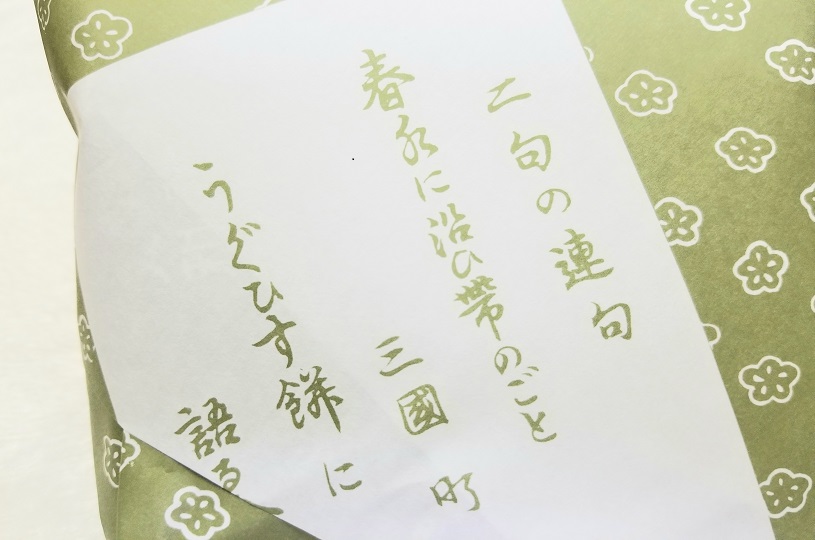 二句の連句
春水に沿ひ帯のごと
三國町
うぐひす餅に
語る